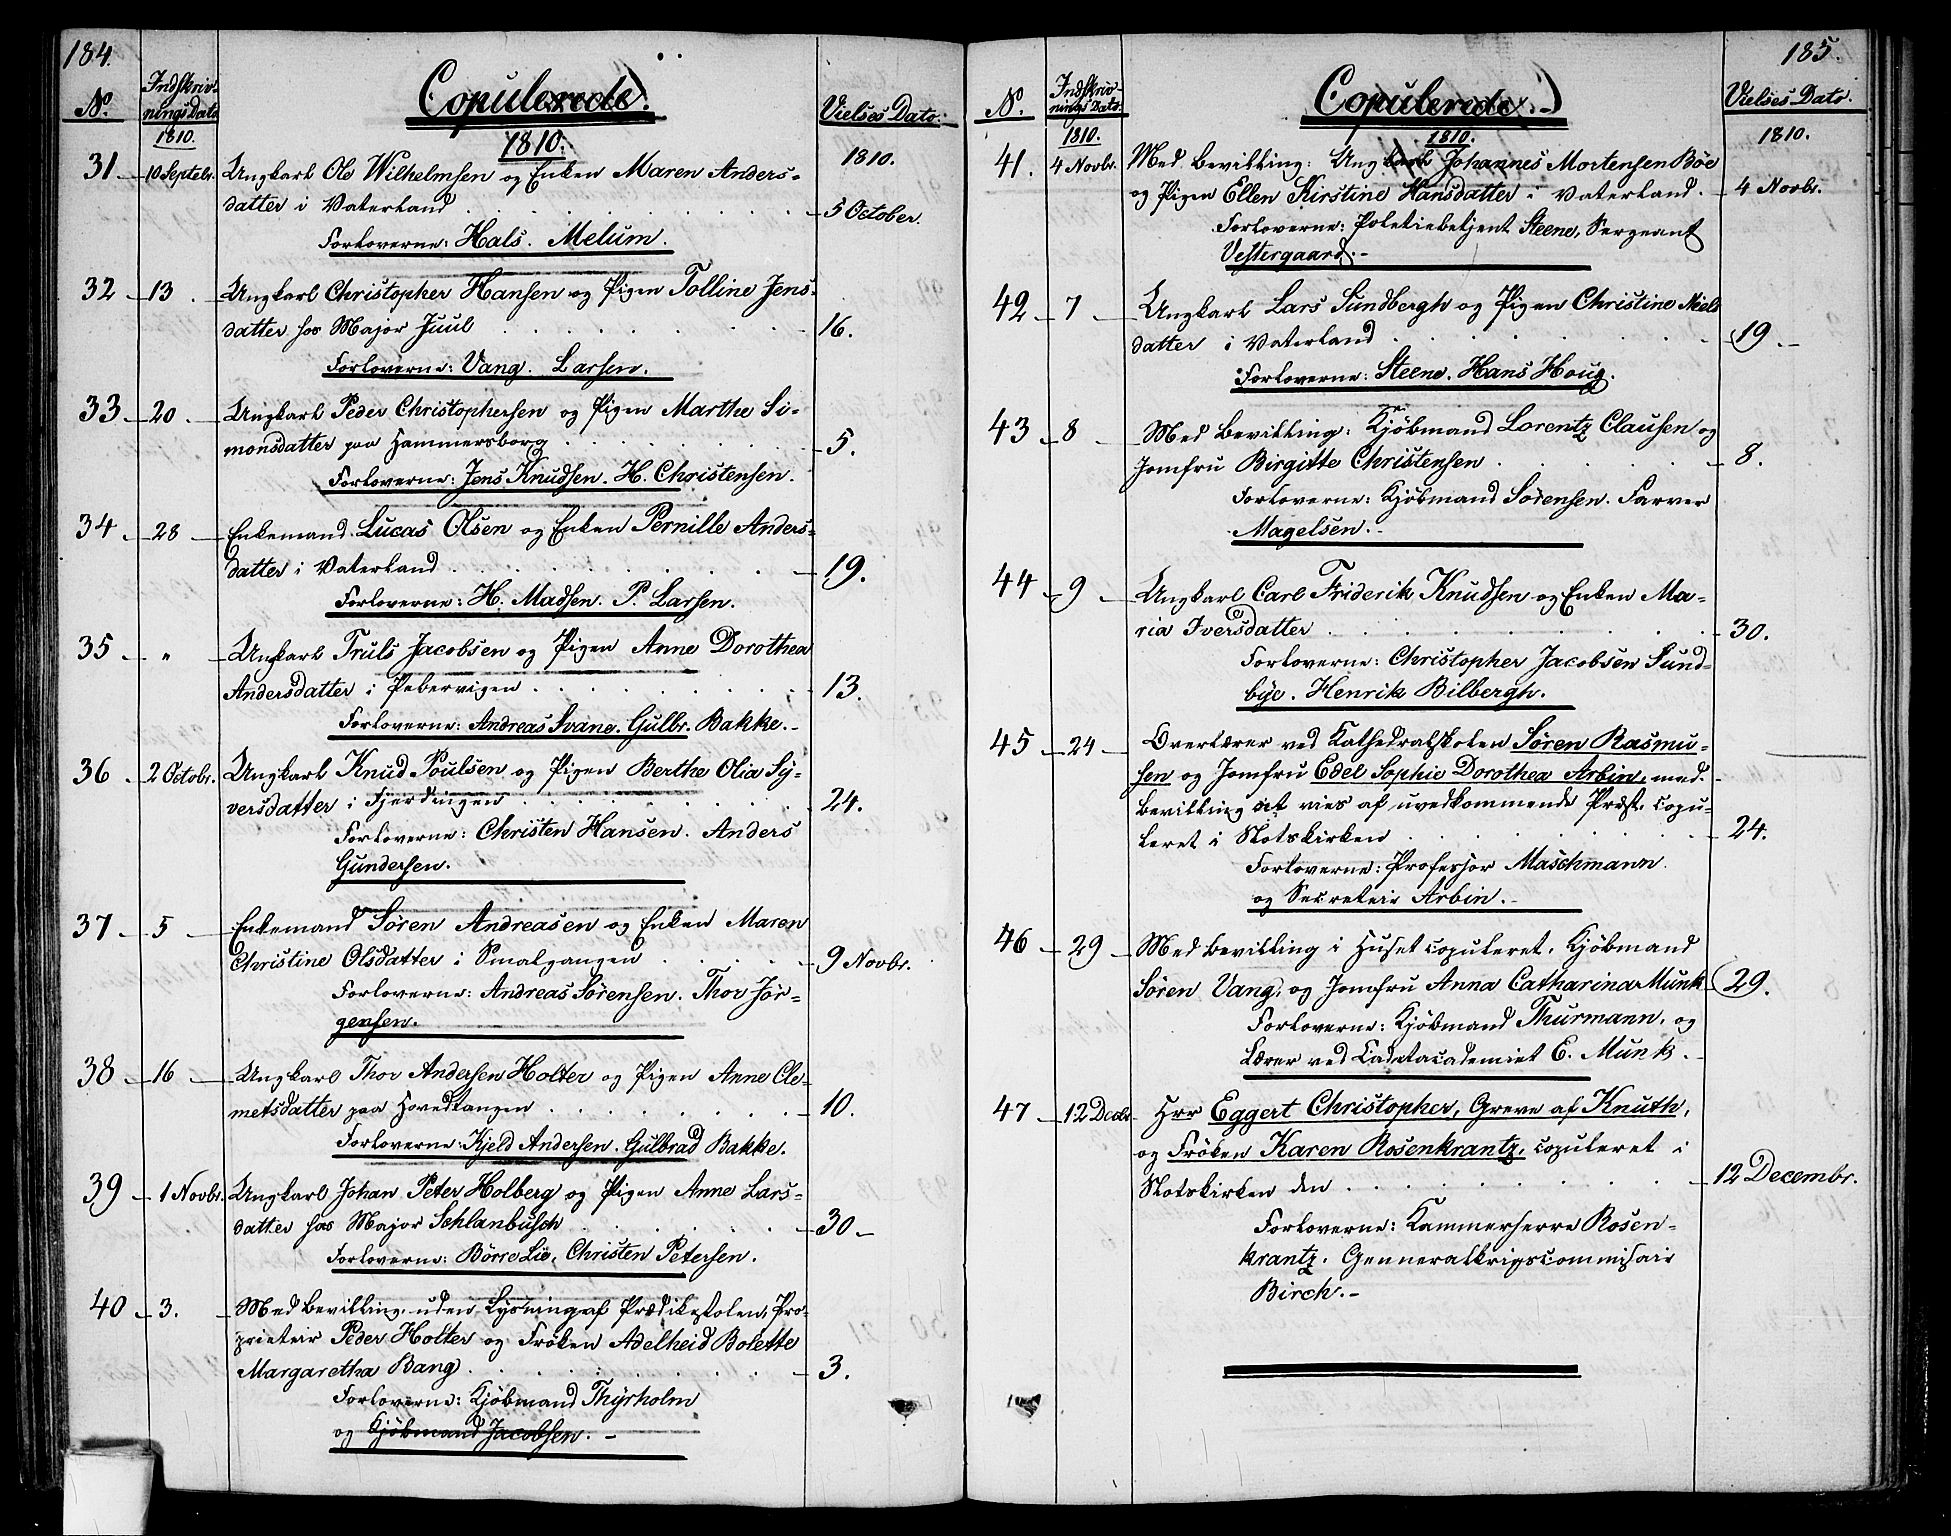 184.
No.
Indskriv-
nings Dato
1810.
Copulerede.
1810.
Vielses Dato:
1810.
31. 10 Septebr. Ungkarl Ole Wilhelmsen og Enken Maren Anders-
datter i Vaterland . . . 5 October.
Forloverne: Hals. Melum.
32 13. Ungkarl Christopher Hansen og Pigen Tolline Jens-
datter hos Major Juul . . . 16.
Forloverne: Vang. Larsen.
33 20. Ungkarl Peder Christophersen og Pigen Marthe Si-
monsdatter paa Hammersborg . . . 5.
Forloverne: Jens Knudsen. H. Christensen.
34. 28 Enkemand Lucas Olsen og Enken Pernille Anders-
datter i Vaterland . . . 19.
Forloverne: H. Madsen. P. Larsen.
35 " Ungkarl Truls Jacobsen og Pigen Anne Dorothea
Andersdatter i Pebervigen . . . 13.
Forloverne: Andreas Svane. Gulbr. Bakke.
36. 2 Octobr. Ungkarl Knud Poulsen og Pigen Berthe Olia Sy-
versdatter i Fjerdingen . . . 24.
Forloverne: Christen Hansen. Anders
Gundersen.
37. 5 Enkemand Søren Andreasen og Enken Maren
Christine Olsdatter i Smalgangen . . . 9 Novbr.
Forloverne: Andreas Sørensen. Thor Jør-
gensen.
38 16 Ungkarl Thor Andersen Holter og Pigen Anne Cle-
metsdatter paa Hovedtangen . . . 10.
Forloverne: Kjeld Andersen. Gulbrad Bakke.
39 1 Novbr. Ungkarl Johan Peter Holberg og Pigen Anne Lars-
datter hos Major Schlanbusch . . . 30
Forloverne: Børre Lie, Christen Petersen.
40 3. Med Bevilling uden Lysning af Prædikestolen, Pro-
prieteir Peder Holter og Frøken Adelheid Bolette
Margaretha Bang . . . 3.
Forloverne: Kjøbmand Thyrholm
og Kjøbmand Jacobsen.
185.
No.
Indskriv-
nings Dato.
1810.
Copulerede.
1810.
Vielses Dato.
1810.
41. 4 Novbr. Med Bevilling: Ungkarl Johannes Mortensen Böe
og Pigen Ellen Kirstine Hansdatter i Vaterland. 4 Novbr.
Forloverne: Poletiebetjent Steene, Sergeant
Vestergaard.
42 7 Ungkarl Lars Sundbergh og Pigen Christine Niels
datter i Vaterland . . . 19.
Forloverne: Steene. Hans Houg.
43 8 Med Bevilling: Kjøbmand Lorentz Clausen og
Jomfru Birgitte Christensen . . . 8.
Forloverne: Kjøbmand Sörensen. Farver
Magelsen.
44 9 Ungkarl Carl Friderik Knudsen og Enken Ma-
ria Iversdatter . . . 30.
Forloverne: Christopher Jacobsen Sund-
bye. Henrik Bilbergh.
45 24 Overlærer ved Kathedralskolen Søren Rasmu-
sen og Jomfru Edel Sophie Dorothea Arbin, med
Bevilling at vies af uvedkommende Præst, copu-
leret i Slotskirken . . . 24.
Forloverne: Professor Maschmann
og Secreteir Arbin.
46 29 Med Bevilling i Huset copuleret, Kjöbmand
Sören Vang, og Jomfru Anna Catharina Munk 29.
Forloverne: Kjöbmand Thurmann, og
Lærer ved Cadetacademiet E. Munk.
47 12 Decbr. Hrr Eggert Christopher, Greve af Knuth,
og Frøken Karen Rosenkrantz, copuleret i
Slotskirken den . . . 12 Decembr.
Forloverne: Kammerherre Rosen-
krantz. Genneralkrigscommisair
Birch.